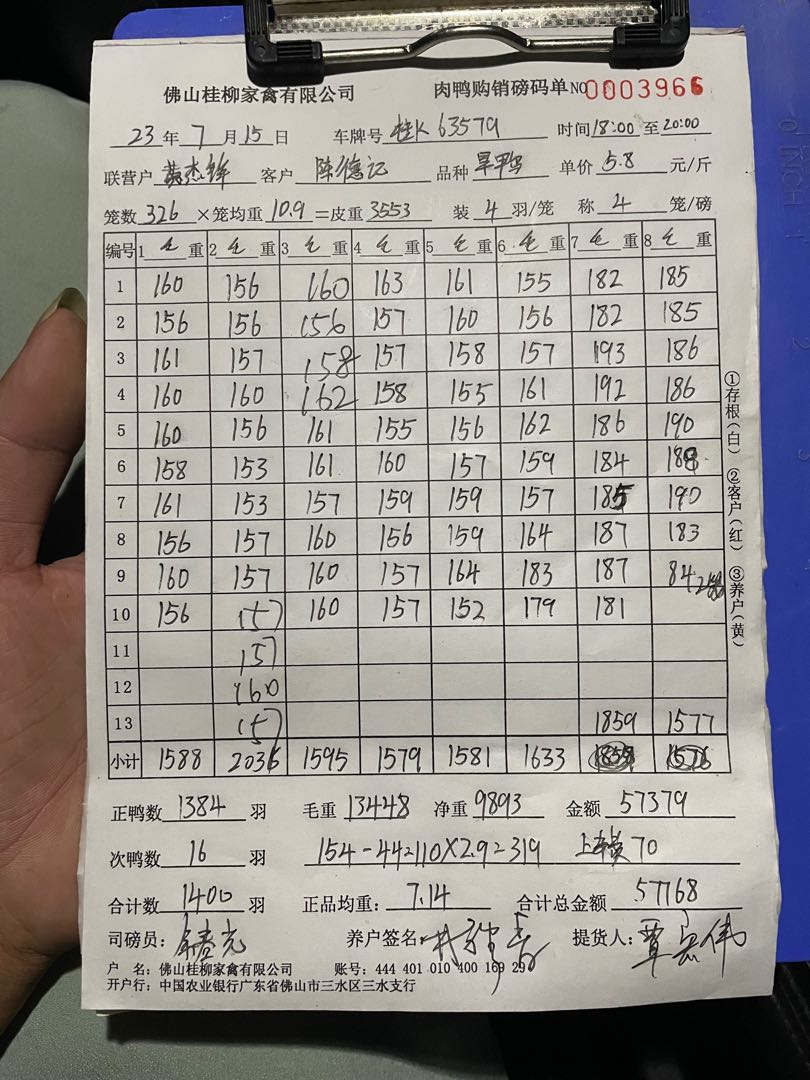 佛山桂柳家禽有限公司 肉鸭购销磅码单 NO 0003966
23 年 7 月 15 日 车牌号 桂K 63579 时间 18:00 至 20:00
联营户 黄杰锋 客户 陈德记 品种 旱鸭 单价 5.8 元/斤
笼数 326 ×笼均重 10.9 =皮重 3553 装 4 羽/笼 称 4 笼/磅
编号 1 毛 重 2 毛 重 3 毛 重 4 毛 重 5 毛 重 6 毛 重 7 毛 重 8 毛 重
1 160 156 160 163 161 155 182 185
2 156 156 156 157 160 156 182 185
3 161 157 158 157 158 157 193 186
4 160 160 162 158 155 161 192 186
5 160 156 161 155 156 162 186 190
6 158 153 161 160 157 159 184 188
7 161 153 157 159 159 157 185 190
8 156 157 160 156 159 164 187 183
9 160 157 160 157 164 183 187 84
10 156 157 160 157 152 179 181
11 157
12 160
13 157 1859 1577
小计 1588 2036 1595 1579 1581 1633 1859 1576
①存根(白) ②客户(红) ③养户(黄)
正鸭数 1384 羽 毛重 13448 净重 9893 金额 57379
次鸭数 16 羽 154-44=110×2.9=319 上车费70
合计数 1400 羽 正品均重: 7.14 合计总金额 57168
司磅员: 养户签名: 提货人: 覃宏伟
户 名: 佛山桂柳家禽有限公司 账号: 444 401 010 400 169 29
开户行: 中国农业银行广东省佛山市三水区三水支行